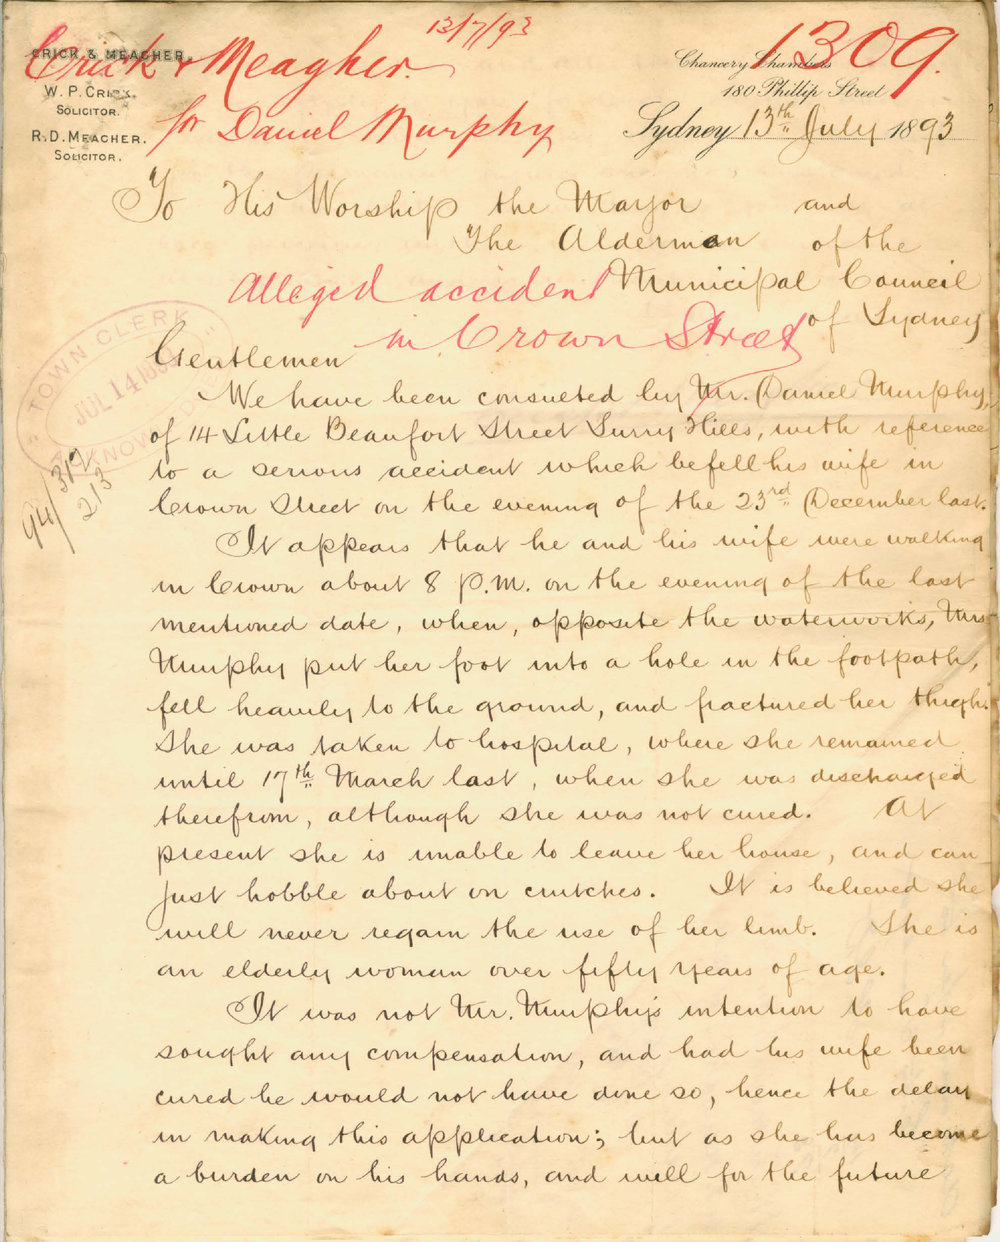 13/7/93
1309.
Crick & Meagher.
for Daniel Murphy
CRICK & MEAGHER.
W. P. CRICK.
SOLICITOR.
R. D. MEAGHER.
SOLICITOR.
Chancery Chambers
180 Phillip Street
Sydney 13th July 1893
To His Worship the Mayor and
The Alderman of the
Municipal Council
of Sydney
Alleged accident
in Crown Street
TOWN CLERK
JUL 14 1893
94/312
213
Gentlemen
We have been consulted by Mr. Daniel Murphy,
of 14 Little Beaufort Street Surry Hills, with reference
to a serious accident which befell his wife in
Crown Street on the evening of the 23rd December last.
It appears that he and his wife were walking
in Crown about 8 P.M. on the evening of the last
mentioned date, when, opposite the waterworks, Mrs
Murphy put her foot into a hole in the footpath,
fell heavily to the ground, and fractured her thigh.
She was taken to hospital, where she remained
until 17th March last, when she was discharged
therefrom, although she was not cured. At
present she is unable to leave her house, and can
just hobble about on crutches. It is believed she
will never regain the use of her limb. She is
an elderly woman over fifty years of age.
It was not Mr. Murphy's intention to have
sought any compensation, and had his wife been
cured he would not have done so, hence the delay
in making this application; but as she has become
a burden on his hands, and will for the future